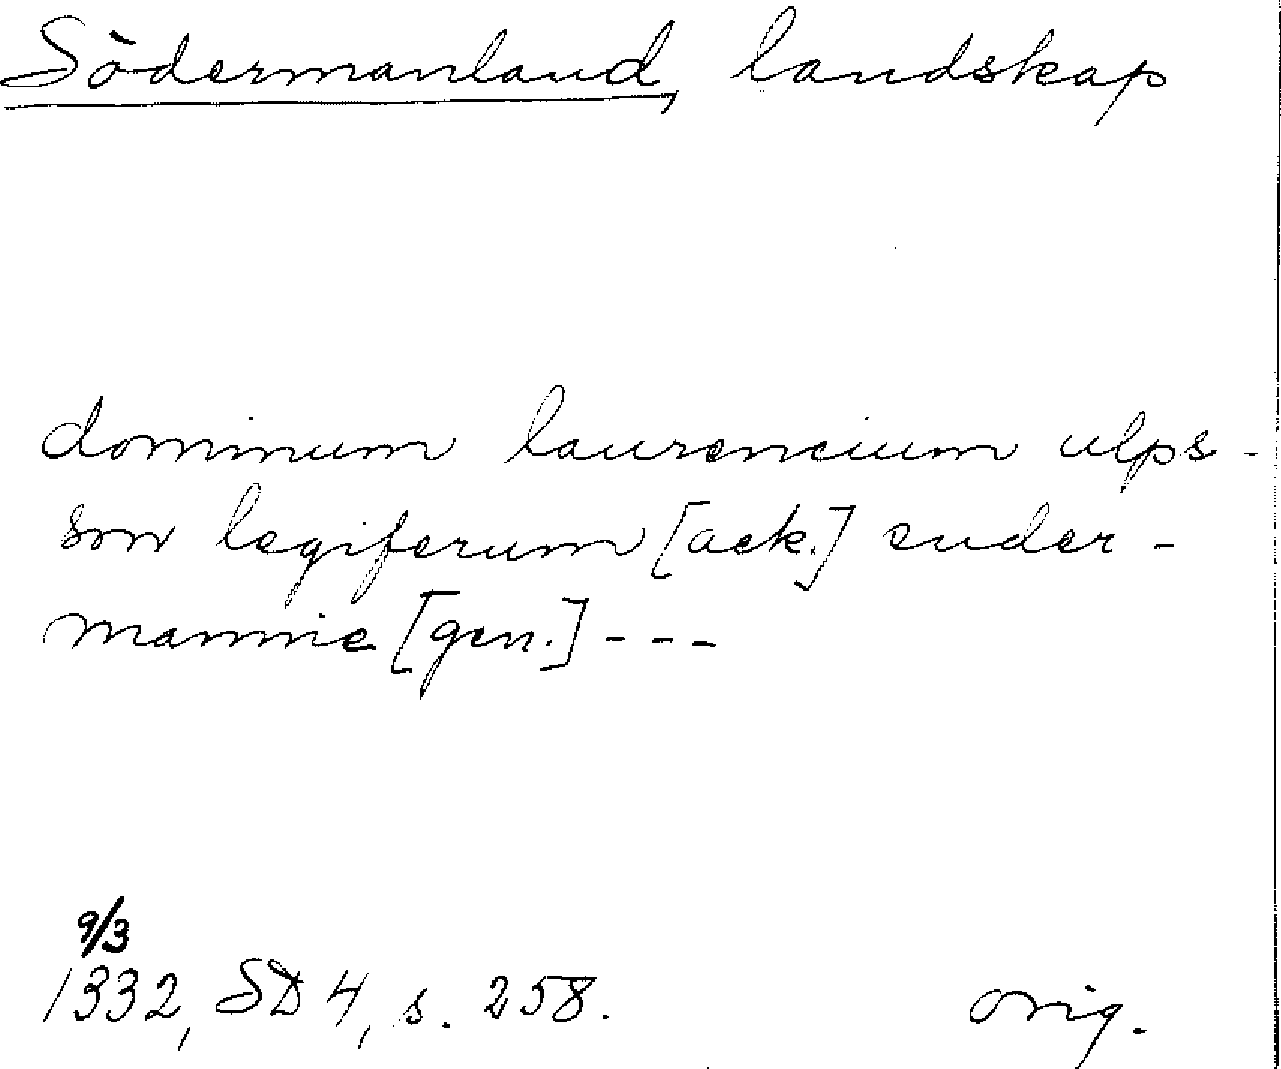 Södermanland, landskap
dominum laurencium ulps-
son legiferum [ack.] suder-
mannie [gen.] - - -
9/3
1332, SD 4, s. 258. orig.